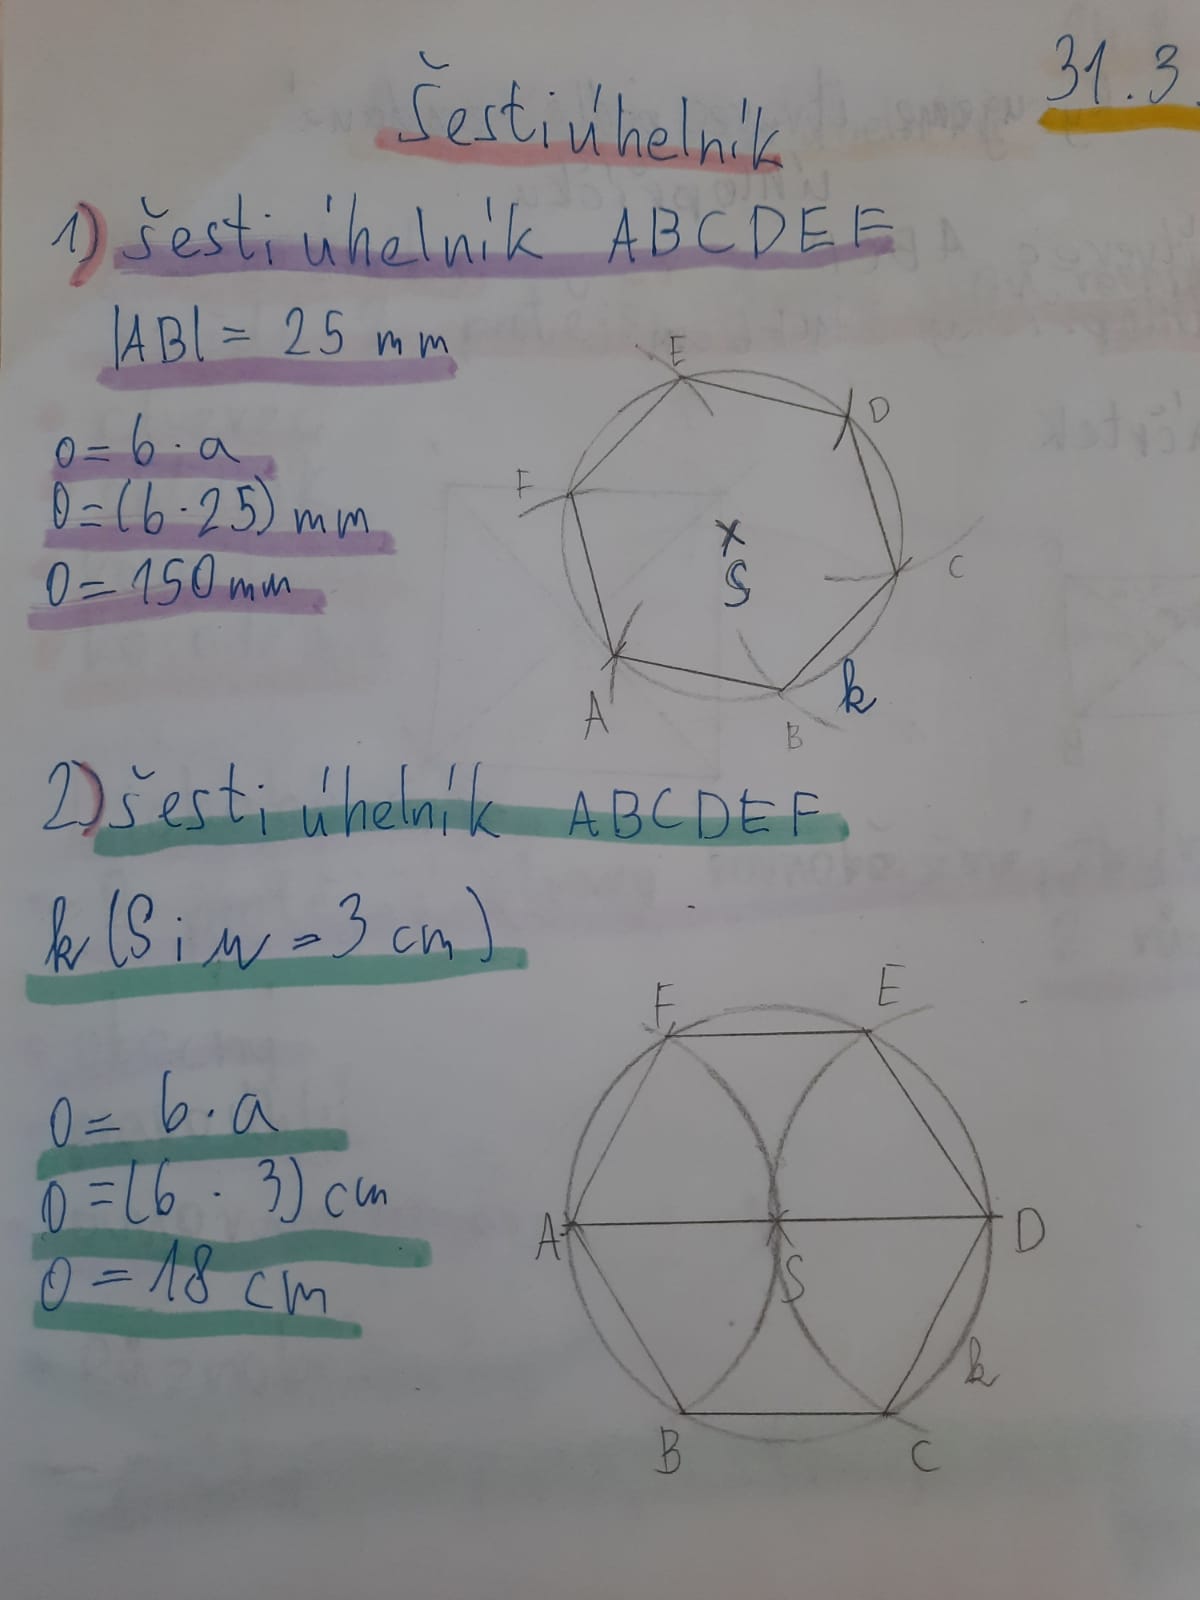 31.3.
Šestiúhelník
1) šestiúhelník ABCDEF
|AB| = 25 mm
o = 6 · a
o = (6 · 25) mm
o = 150 mm
E
D
F
S
C
A
k
B
2) šestiúhelník ABCDEF
k (S; r = 3 cm)
F E
o = 6 · a
o = (6 · 3) cm
A D
S
o = 18 cm
k
B C